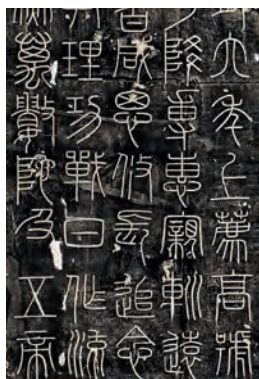 有六年上薦高號
乃降尃惠親巡遠
者咸思攸長追念
爭理功戰日作流
無萬數陀及五帝